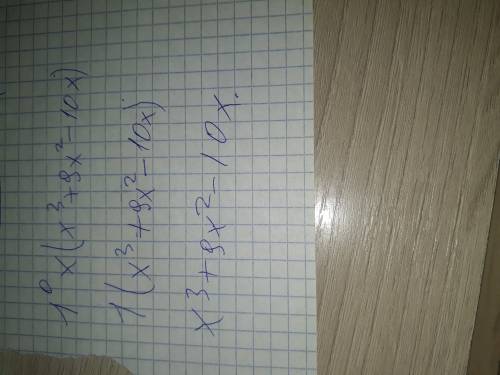 1⁰x(x³+9x²-10x)
1(x³+9x²-10x)
x³+9x²-10x.